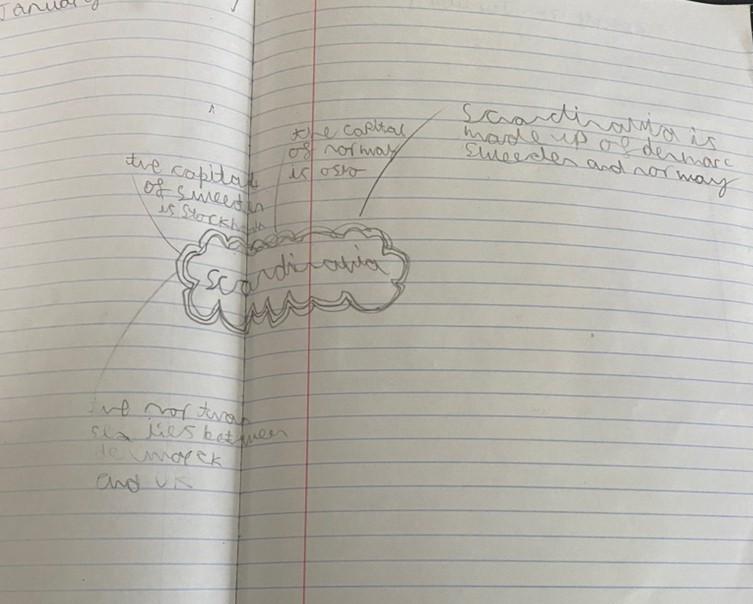 January
the capital
of Sweeden
is Stock
the capital
of norway
is oslo
Scandinavia is
made up of denmarc
Sweeden and norway
scandinavia
the nor
sea lies between
denmarck
and UK